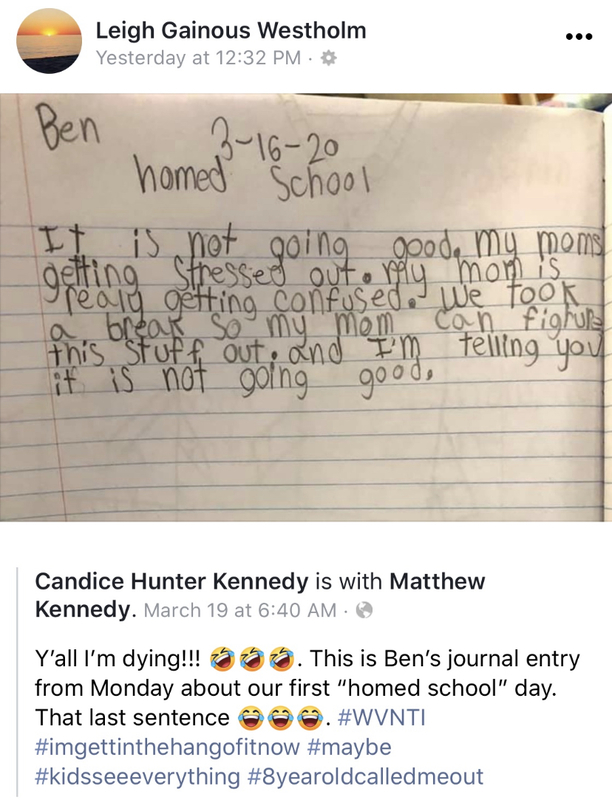 Leigh Gainous Westholm
Yesterday at 12:32 PM ·
Ben
3-16-20
homed School
It is not going good. my moms
getting stressed out. My mom is
realy getting confused. We took
a break so my mom can fighure
this stuff out. and I'm telling you
it is not going good.
Candice Hunter Kennedy is with Matthew
Kennedy. March 19 at 6:40 AM ·
Y'all I'm dying!!! 🤣🤣🤣. This is Ben's journal entry
from Monday about our first "homed school" day.
That last sentence 😂😂😂. #WVNTI
#imgettinthehangofitnow #maybe
#kidsseeeverything #8yearoldcalledmeout